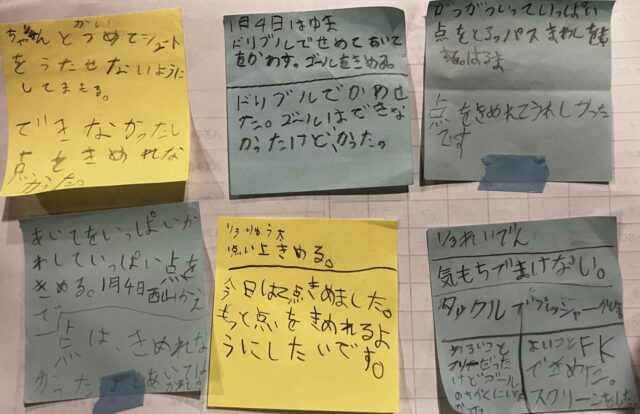 かい
ちゃんとつめてシュート
をうたせないように
してまもる。
できなかったし
点をきめれな
かった。
1月4日はゆま
ドリブルでせめてあいて
をかわす。ゴールをきめる。
ドリブルでかわせ
た。ゴールはできな
かったけど、かった。
がつがついっていっぱい
点をとる
パスまわし
はるま
点をきめれてうれしかった
です
あいてをいっぱいか
わしていっぱい点を
きめる。1月4日西山
点は、きめれな
かった
1/3りゅう太
点きめる。
今日は2点きめました。
もっと点をきめれるよ
うにしたいです。
1/3れいでん
気もちでまけない。
タックル
わるいこと
だった
けどゴール
のちかくに
よいことFK
できめた。
スクリーンを